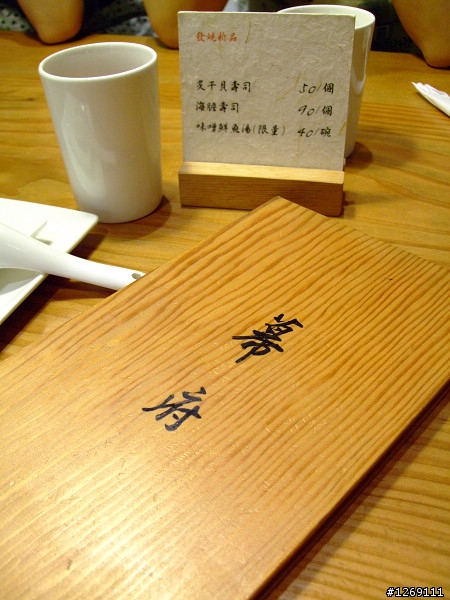 發燒新品
炙干貝壽司 50/個
海膽壽司 90/個
味噌鮮魚湯(限量) 40/碗
幕府
#1269111